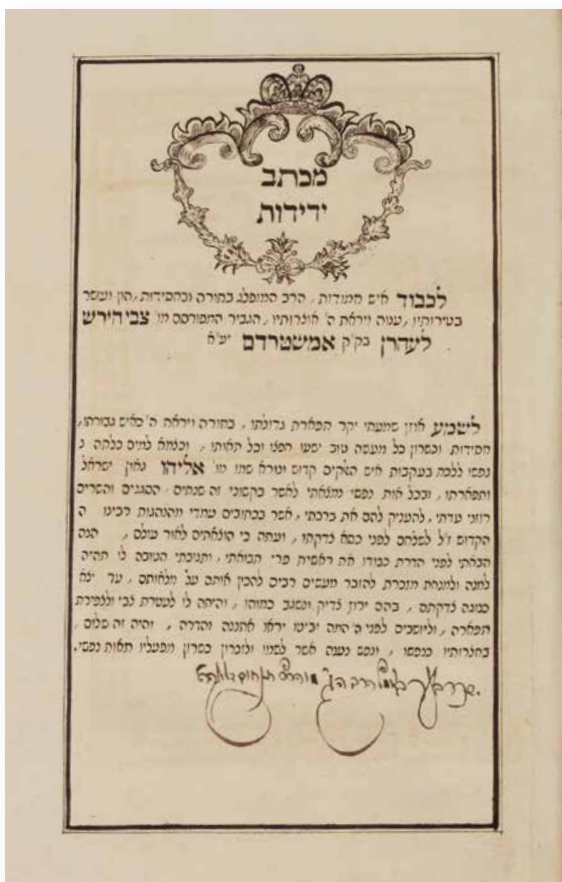 מכתב
ידידות
לכבוד איש חמודות, הרב המופלג בתורה ובחסידות, הון ועשר
בטירותיו, ענוה ויראת ה' אוצרותיו, הגביר המפורסם מו' צבי הירש
לעהרן בק"ק אמשטרדם יע"א
לשמע אוזן שמעתי יקר תפארת גדולתו, בתורה ויראת ה' כאיש גבורתו,
חסידות וכשרון כל מעשה טוב ישעו חפצו וכל תאותו,
נפשי ללכת בעקבות איש האקים קדוש ונורא שמו מו' אליהו גאון ישראל
ותפארתו, ובכל אות נפשי מלאתי לאשר בקשוני זה שנתים הסגנים והשרים
רוזני עדתי, להעניק להם את ברכתי, אשר בכתובים עמדי מהנהגות רבינו ה
הקדוש ז"ל לשלחם לפני כסא צדקתו, ועתה כי הוצאתים לאור עולם, הנה
הבאתי לפני הדרת כבודו את ראשית פרי תבואתי, ותגיבתי הטובה לו תהיה
למנה ולמנחת מזכרת להזכר מעשים רבים להכין אותם על מלאותם, עד יצא
כנוגה צדקתם, בהם ירוץ צדיק ונשגב כמוהו, והיתה לו לעטרת צבי ולצפירת
תפארה, וליושבים לפני ה' המה יביטו יראו אתננה והדרה, והיה זה שלום,
בחצרותיו כנפשו, ונפש נענה אשר לשמו ולזכרון כשרון מפעליו תאות נפשי.